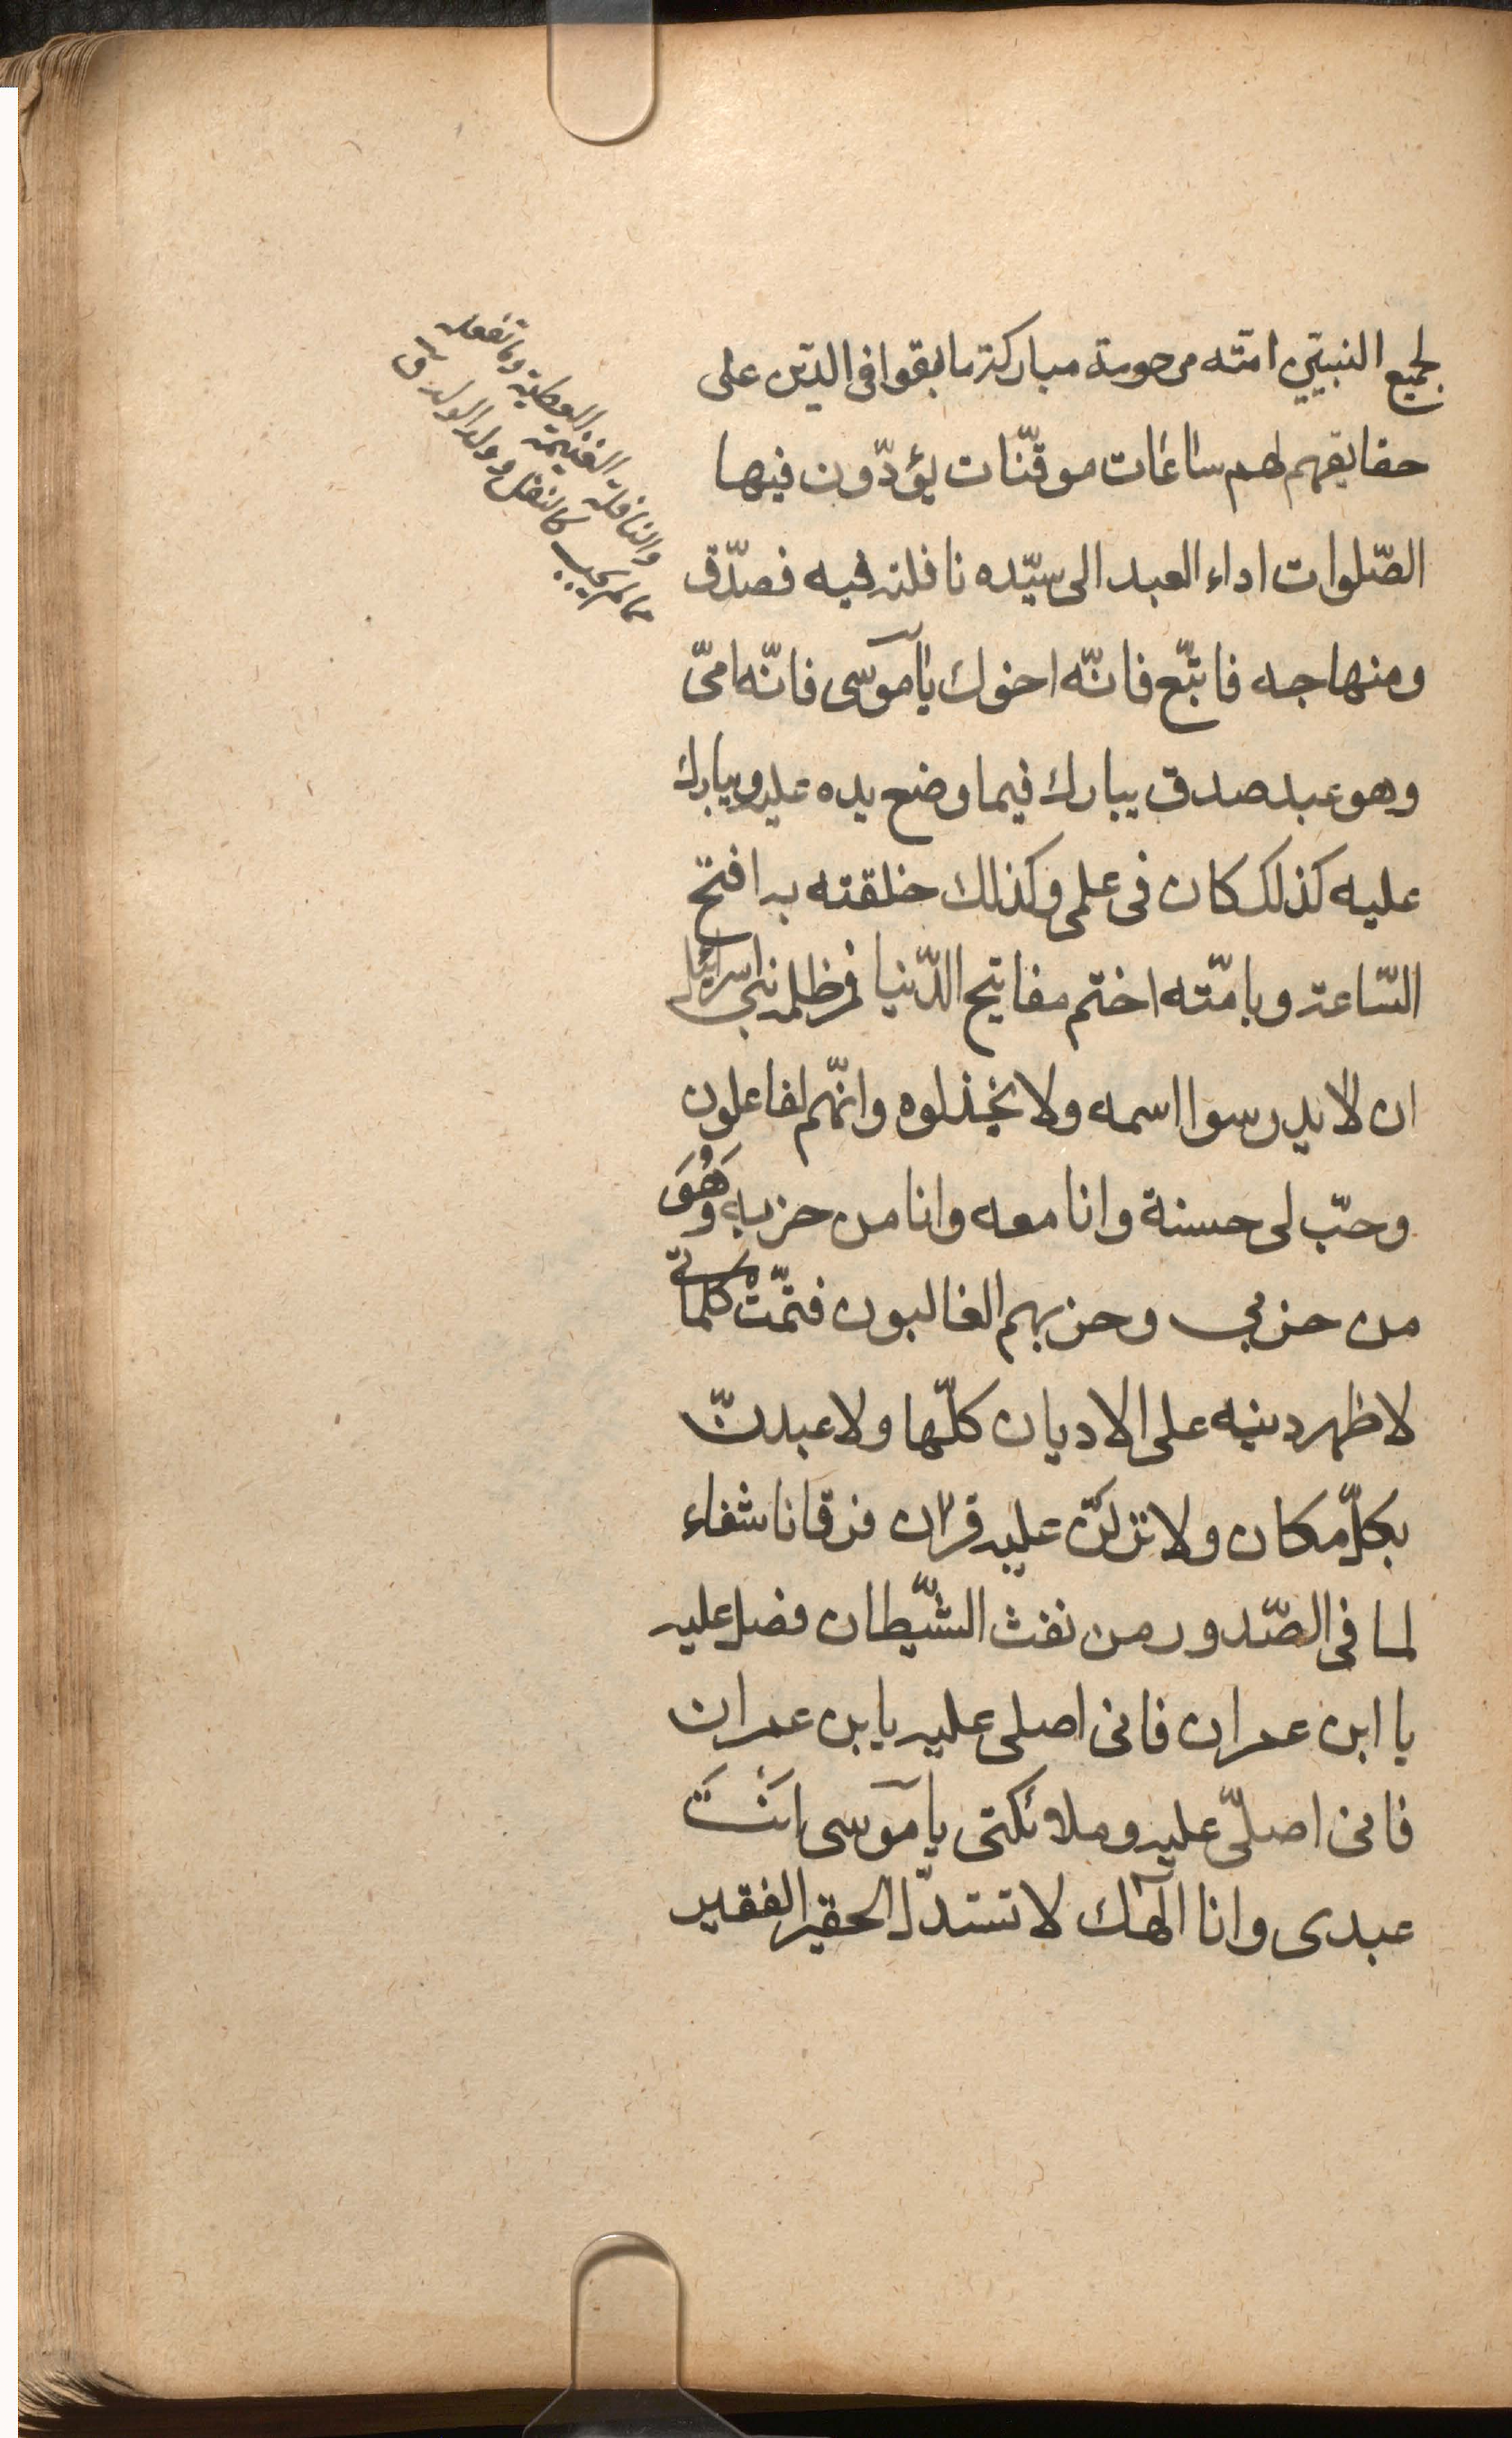 لجميع النبيين امّته مرحومة مباركة ما بقوا فى الدّين على
حقايقهم لهم ساعات موقّتات يؤدّون فيها
الصّلوات اداء العبد الى سيّده نافلته فبه فصدّق
ومنهاجه فاتّبع فانّه اخوك يا موسى فانّه امىّ
وهو عبد صدق يبارك فيما وضع يده عليه ويبارك
عليه كذلك كان فى علمى وكذلك خلقته به افتح
السّاعة وبامّته اختم مفاتيح الدّنيا فمر ظلمة بنى اسرائيل
ان لا يدرسوا اسمه ولا يخذلوه وانّهم لفاعلون
وحبّ لى حسنة وانا معه وانا من حزبه وَهُوَ
من حزبى وحزبهم الغالبون فتمّتْ كلماتى
لاظهر دينه على الاديان كلّها ولاعبدنّ
بكلّ مكان ولانزلنّ عليه قرآن فرقانا شفاء
لما فى الصّدور من نفث الشّيطان فصل عليه
يا ابن عمران فانى اصلى عليه يابن عمران
فانى اصلّى عليه وملائكتى يا موسى انتَ
عبدى وانا آلهك لا تستذلّ الحقير الفقير
والنافلة الغنيمة العطية وما تفعله
مما لم يجب كالنفل وولد الولد ق